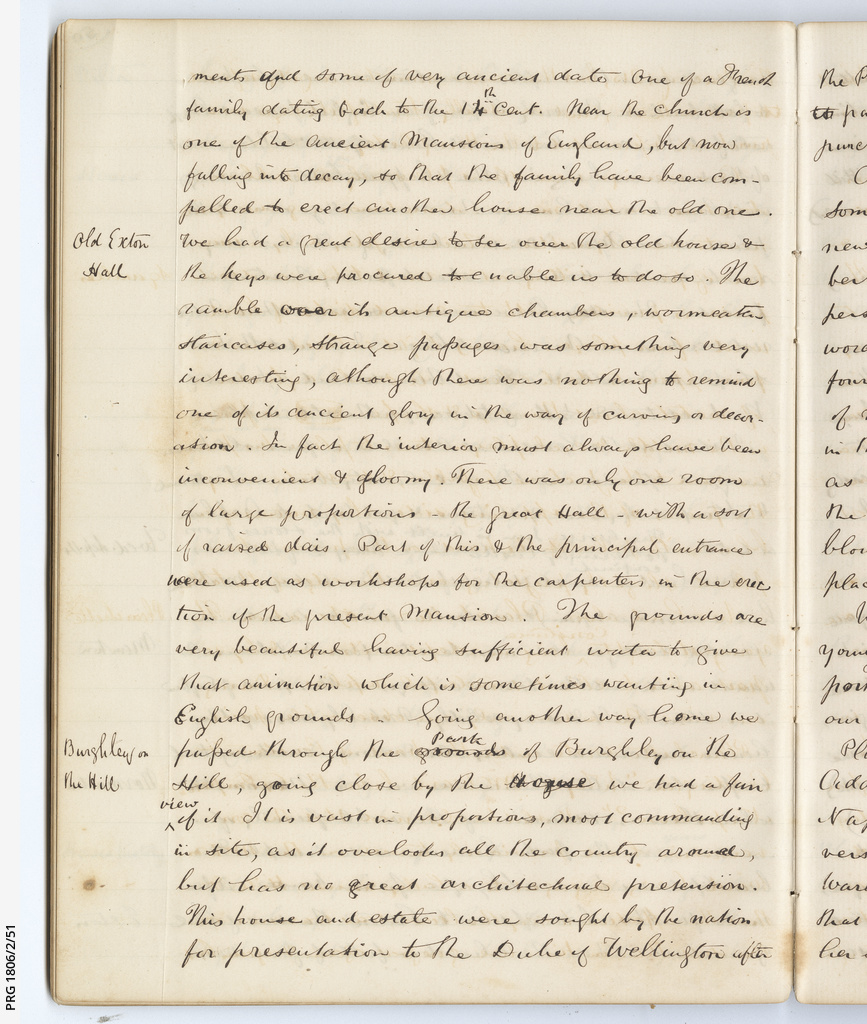 ments and some of very ancient date One of a French
family dating back to the 14th Cent. Near the church is
one of the ancient Mansions of England, but now
falling into decay, so that the family have been com-
pelled to erect another house near the old one.
Old Exton
Hall
We had a great desire to see over the old house &
the keys were procured to enable us to do so. The
ramble over its antique chambers, wormeaten
staircases, strange passages was something very
interesting, although there was nothing to remind
one of its ancient glory in the way of carving or decor-
ation. In fact the interior must always have been
inconvenient & gloomy. There was only one room
of large proportions - the great Hall - with a sort
of raised dais. Part of this & the principal entrance
were used as workshops for the carpenters in the erec
tion of the present Mansion. The grounds are
very beautiful having sufficient water to give
that animation which is sometimes wanting in
English grounds. Going another way home we
Burghley on
the Hill
Park
passed through the grounds of Burghley on the
Hill, going close by the House we had a fair
view
of it It is vast in proportions, most commanding
in site, as it overlooks all the country around,
but has no great architechural pretension.
This house and estate were sought by the nation
for presentation to the Duke of Wellington after
the P
to pa
purc
som
new
ber
pers
word
four
of
in th
as
the
bloo
plac
youn
por
our
Pl
Adda
Nap
vers
war
that
her
PRG 1806/2/51